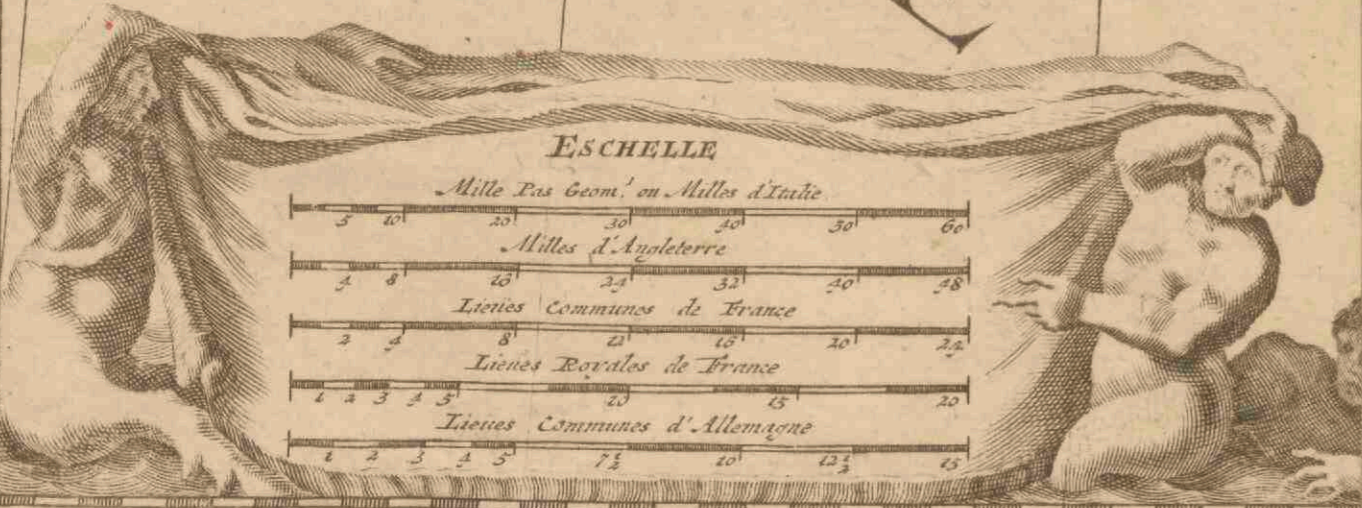 ESCHELLE
Mille Pas Geom.^t ou Milles d'Italie
5 10 20 30 40 50 60
Milles d'Angleterre
4 8 16 24 32 40 48
Lieües Communes de France
2 4 8 12 16 20 24
Lieües Royales de France
1 2 3 4 5 10 15 20
Lieües Communes d'Allemagne
1 2 3 4 5 7½ 10 12½ 15